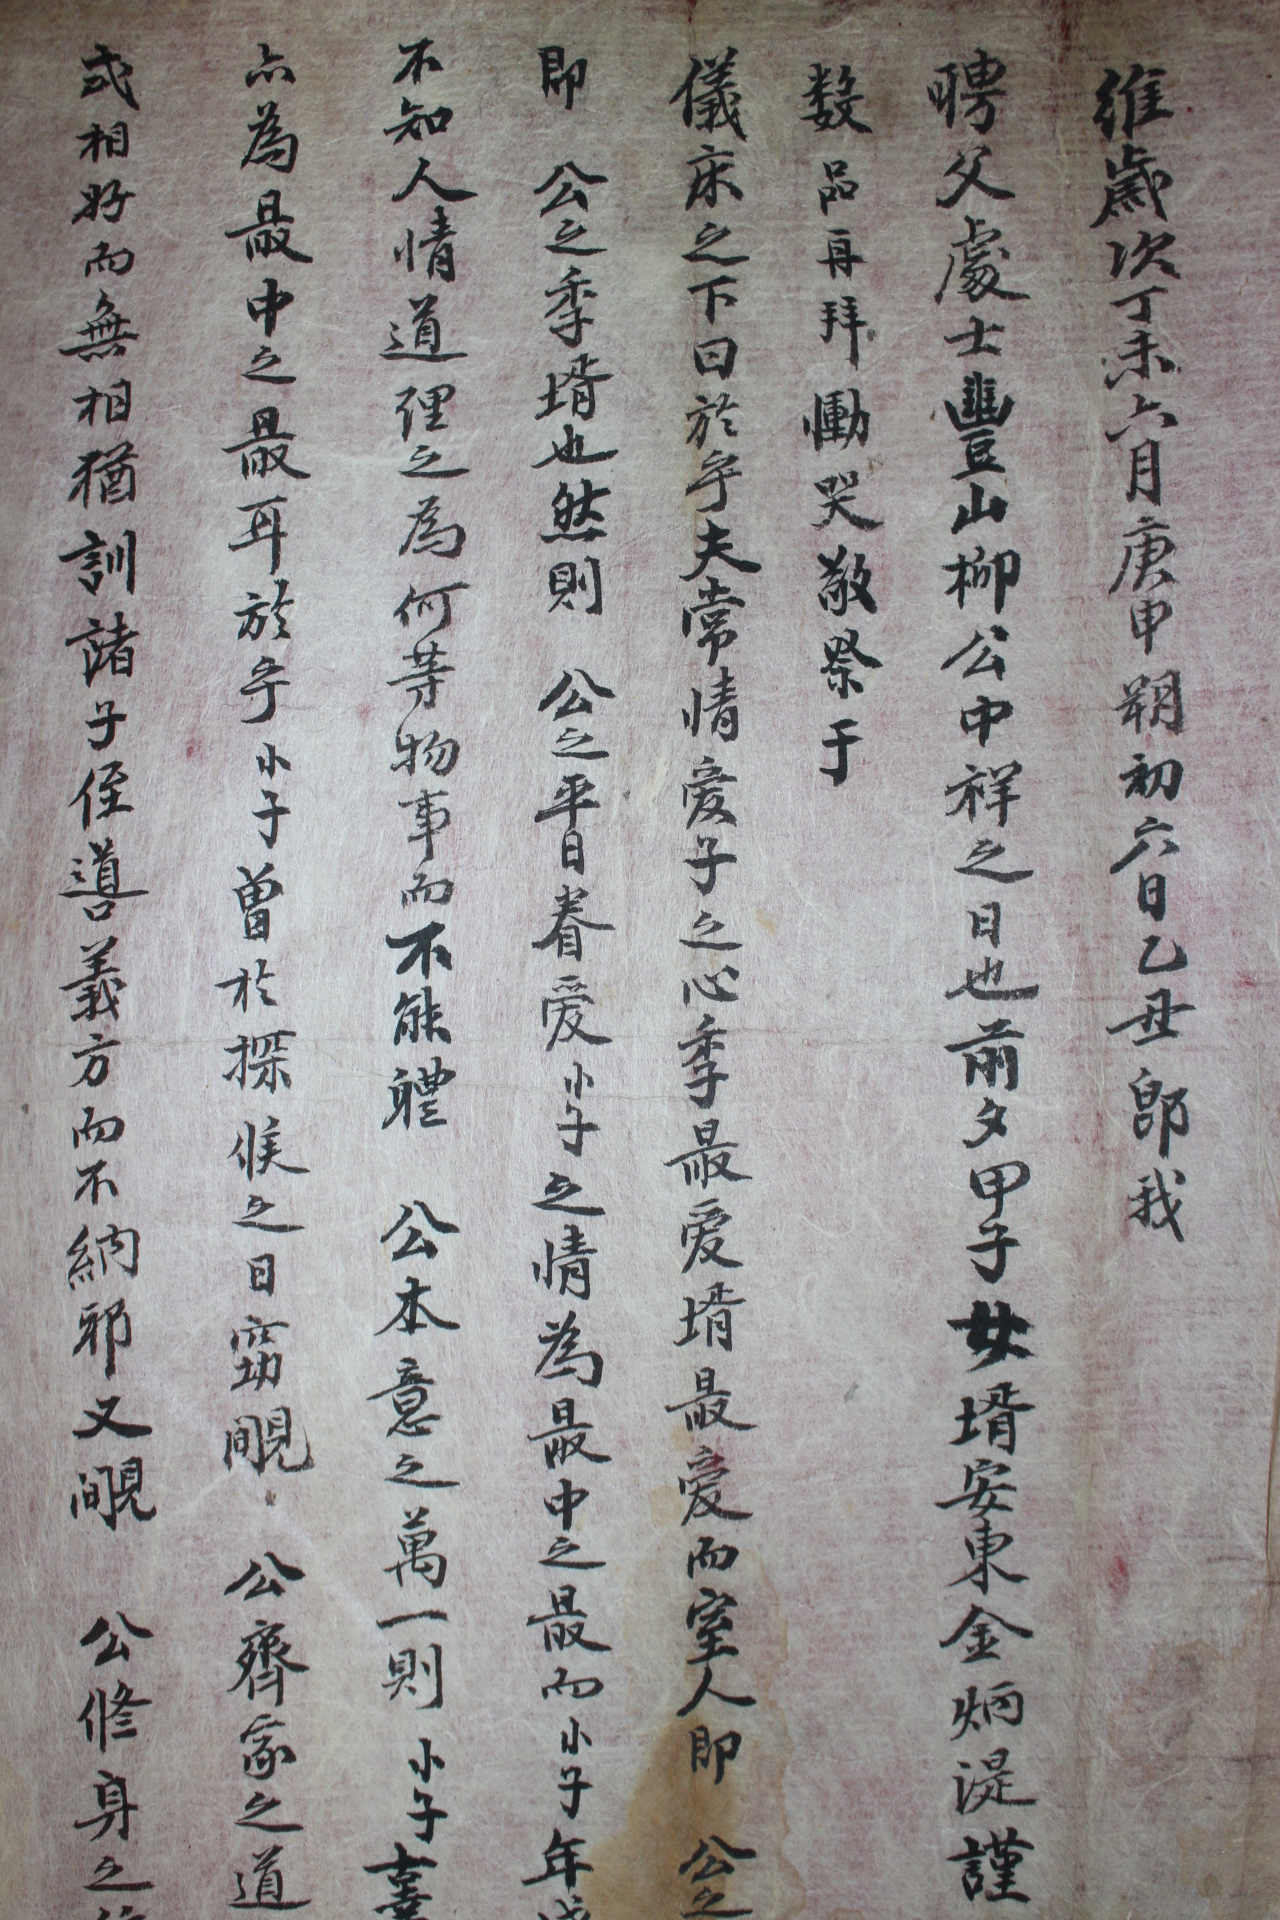 維歲次丁未六月庚申朔初六日乙丑卽我
聘父處士豊山柳公中祥之日也前夕甲子女壻安東金炳湜謹
数品再拜慟哭敬祭于
儀床之下曰於乎夫常情爱子之心季最爱壻最爱而室人即 公之
即 公之季壻也然則 公之平日眷爱小子之情為最中之最而小子年
不知人情道理之為何等物事而不能軆 公本意之萬一則 小子
亦為最中之最耳於乎小子曽於探候之日窃覸 公齊家之道
式相好而無相猶訓諸子侄導義方而不納邪又覸 公修身之